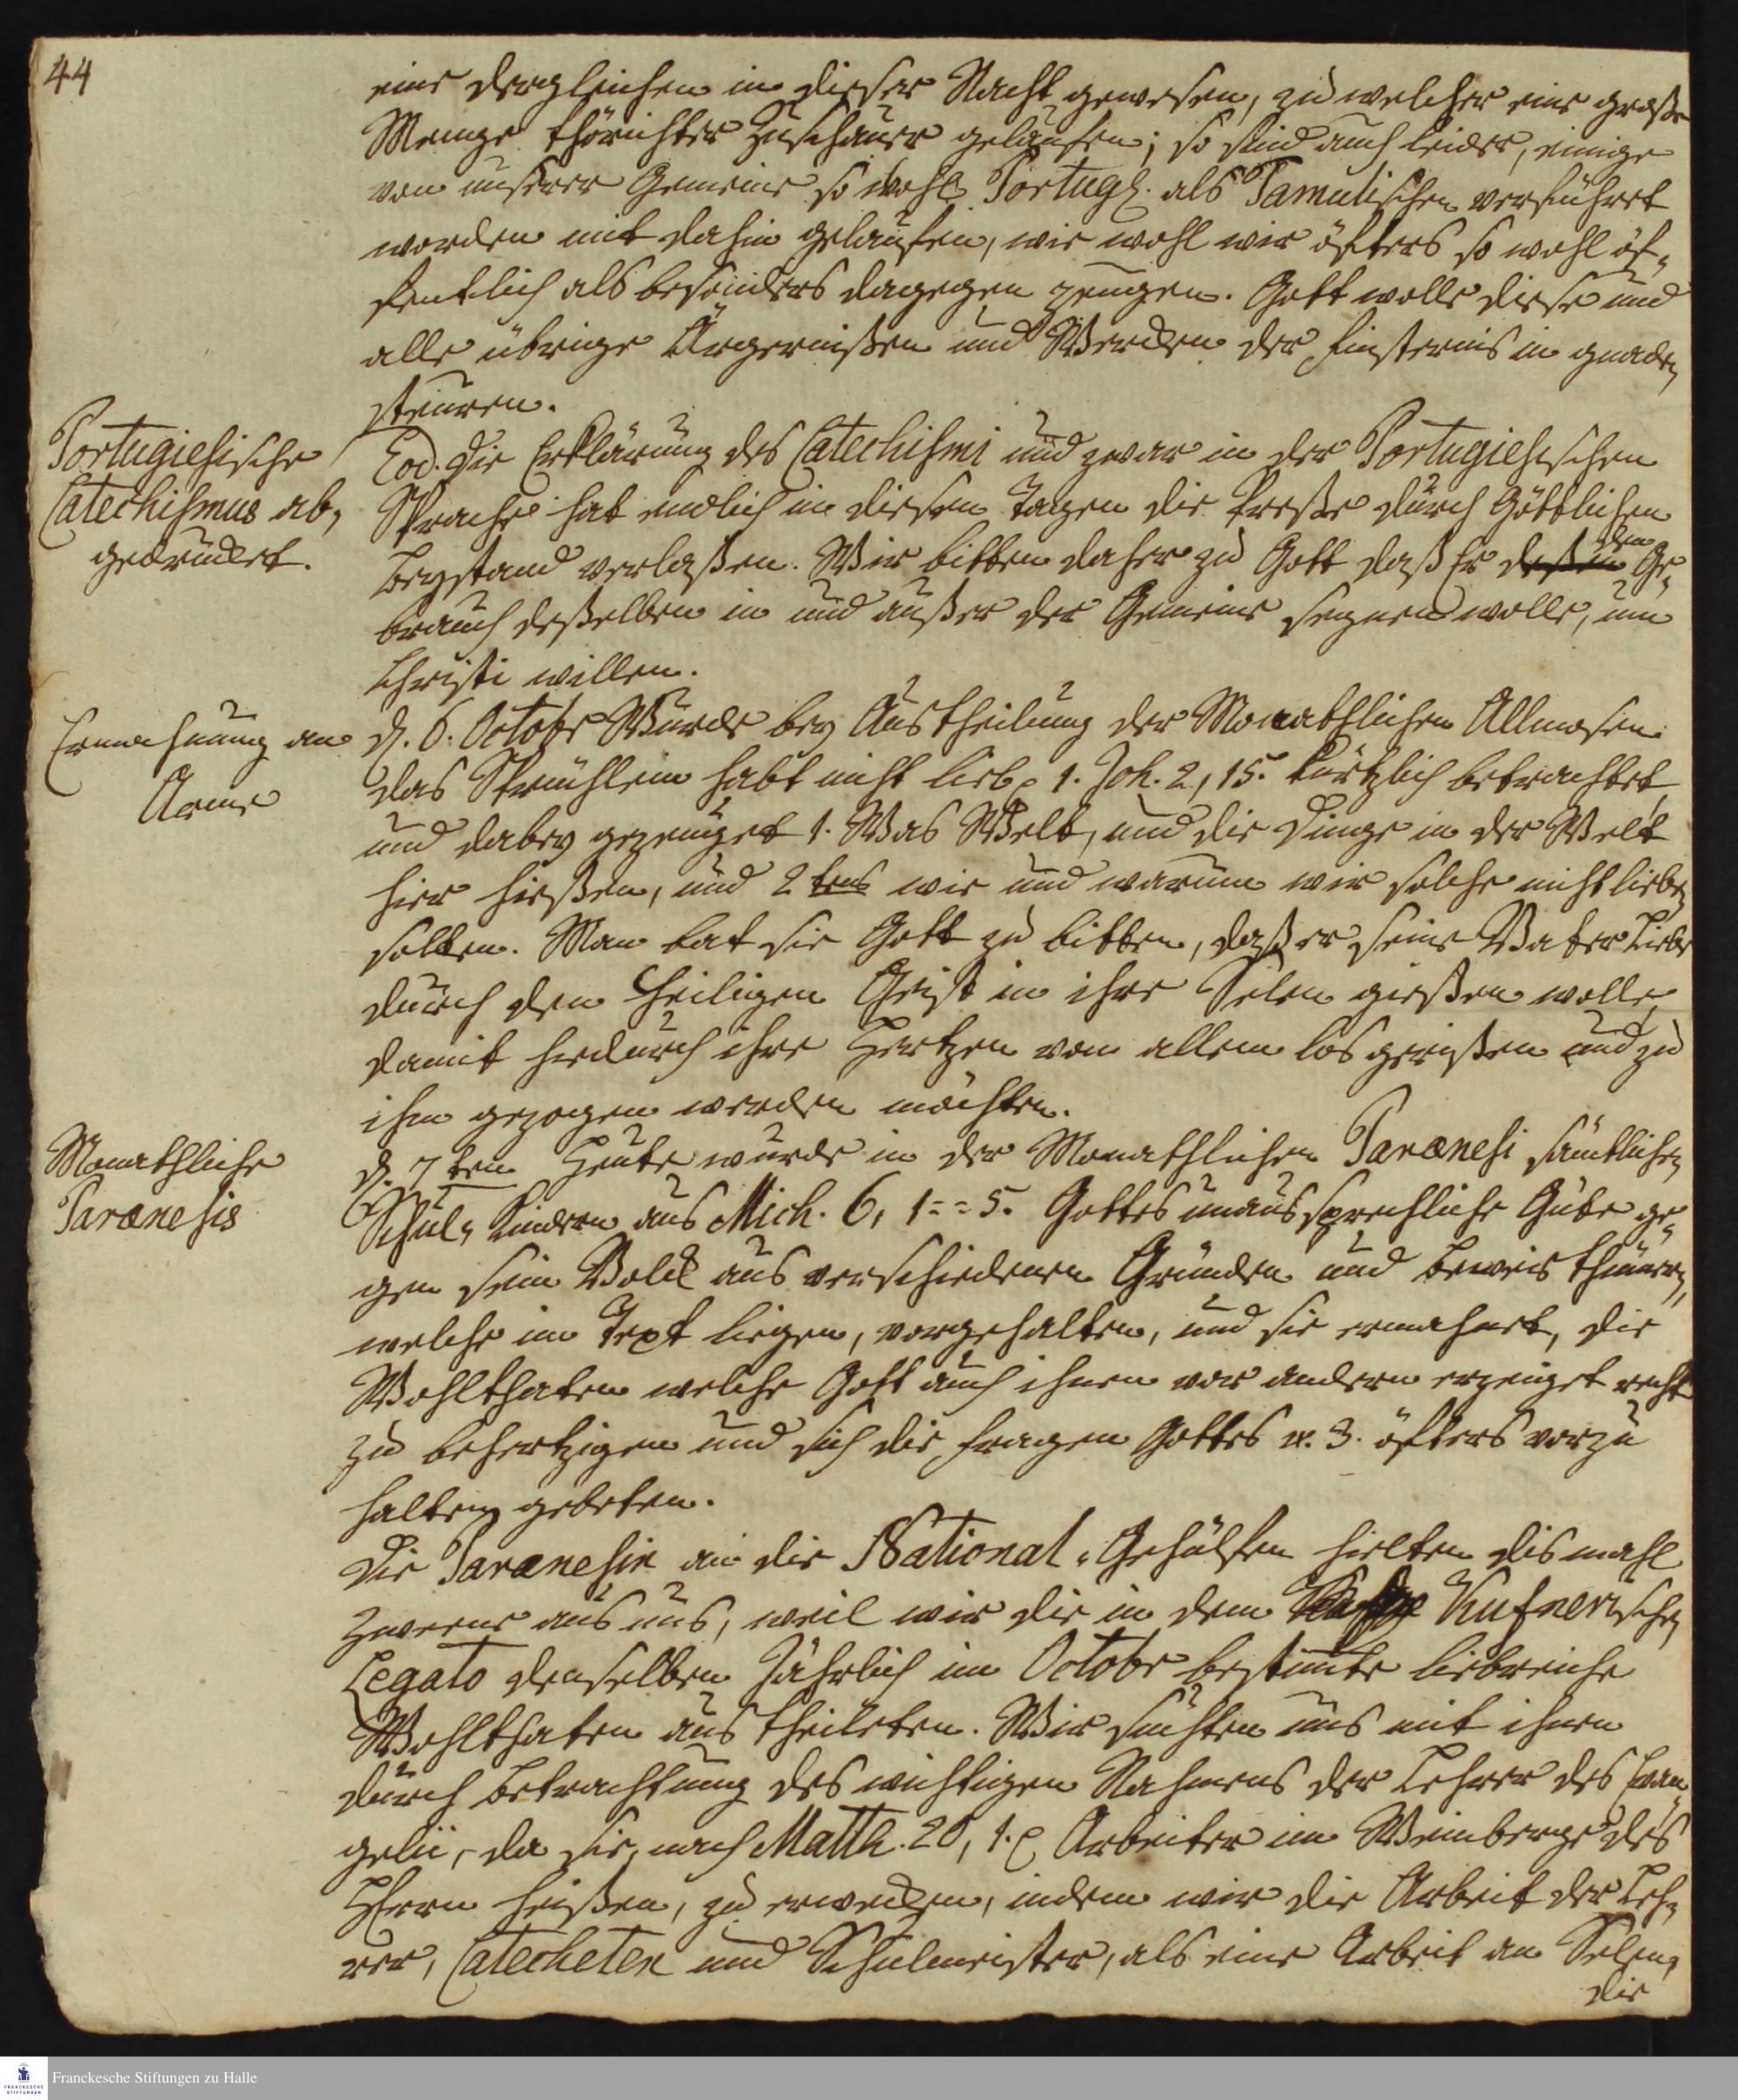 44
eine dergleichen in dieser Nacht gewesen, zu welcher eine große
Menge thörichter Zuschauer gelaufen; so sind auch leider, einige
von unserer Gemeine so wohl Portugs. als Tamulischen verführet
worden mit dahin gelaufen, wie wohl wir öfters so wohl öf-
fentlich als besonders dagegen zeugen. Gott wolle diese und
alle übrige Ärgernißen und Wercken der Finsternis in gnaden
steuren.
Portugiesische
Catechismus ab-
gedrucket.
Eod. Die Erklärung des Catechismi und zwar in der Portugiesischen
Sprache hat endlich in diesen Tagen die Preße durch Göttlichen
Beystand verlaßen. Wir bitten daher zu Gott daß Er deßen den Ge-
brauch deßelben in und außer der Gemeine segnen wolle, um
Christi willen.
Ermahnung an
Arme
d. 6. Octobr Wurde bey Austheilung der Monathlichen Allmosen
das Sprüchlein habt nicht lieb p 1. Joh. 2, 15. kürtzlich betrachtet,
und dabey gezeuget 1. Was Welt, und die Dinge in der Welt
hier hießen, und 2tens wie und warum wir solche nicht lieben
solten. Man bat sie Gott zu bitten, daß er seine Vater Liebe
durch den Heiligen Geist in ihre Selen gießen wolle,
damit hiedurch ihre Hertzen von allem los gerißen und zu
ihm gezogen werden möchten.
Monathliche
Paranesis
d. 7ten Heute wurde in der Monathlichen Paranesi sämtlichen
Schul-Kindern aus Mich. 6, 1--5. Gottes unaussprechliche Güte ge-
gen sein Volck aus verschiedenen Gründen und Beweisthümern,
welche im Text liegen, vorgehalten, und sie ermahnet, die
Wohlthaten welche Gott auch ihnen vor andern erzeiget recht
zu behertzigen und sich die Fragen Gottes v. 3. öfters vorzu
halten gebeten.
Die Paranesin an die National-Gehülfen hielten dismahl
zweene aus uns, weil wir die in dem Kufnerischen
Legato denselben Jährlich im Octobr bestimte liebreiche
Wohlthaten aus theileten. Wir suchten uns mit ihnen
durch Betrachtung des wichtigen Nahmens der Lehrer des Evan-
gelii, da sie, nach Matth. 20, 1. p Arbeiter im Weinberge des
HErrn heißen, zu erwecken, indem wir die Arbeit der Leh-
rer, Catecheten und Schulmeister, als eine Arbeit an Selen,
die
FRANCKESCHE STIFTUNGEN
Franckesche Stiftungen zu Halle